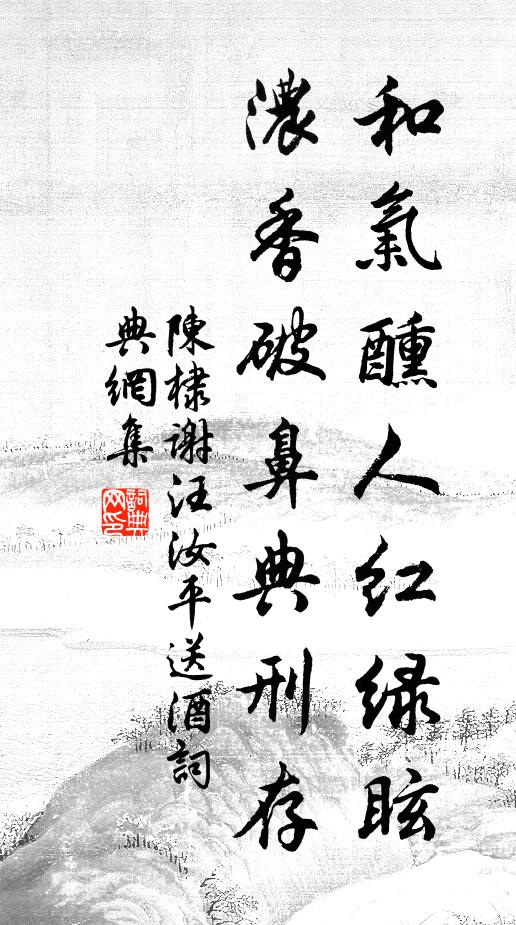 和氣醺人紅緑眩
濃香破鼻典刑存
陳棣謝汪汝平送酒詞
典網集
詞典網印